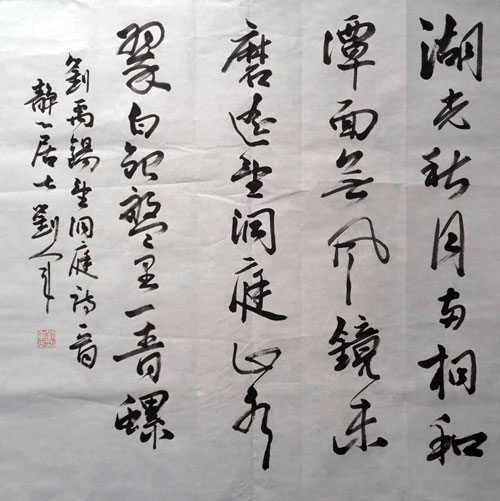 湖光秋月两相和
潭面無風鏡未
磨遥望洞庭山水
翠白銀盤里一青螺
劉禹錫望洞庭诗一首
静一居士劉